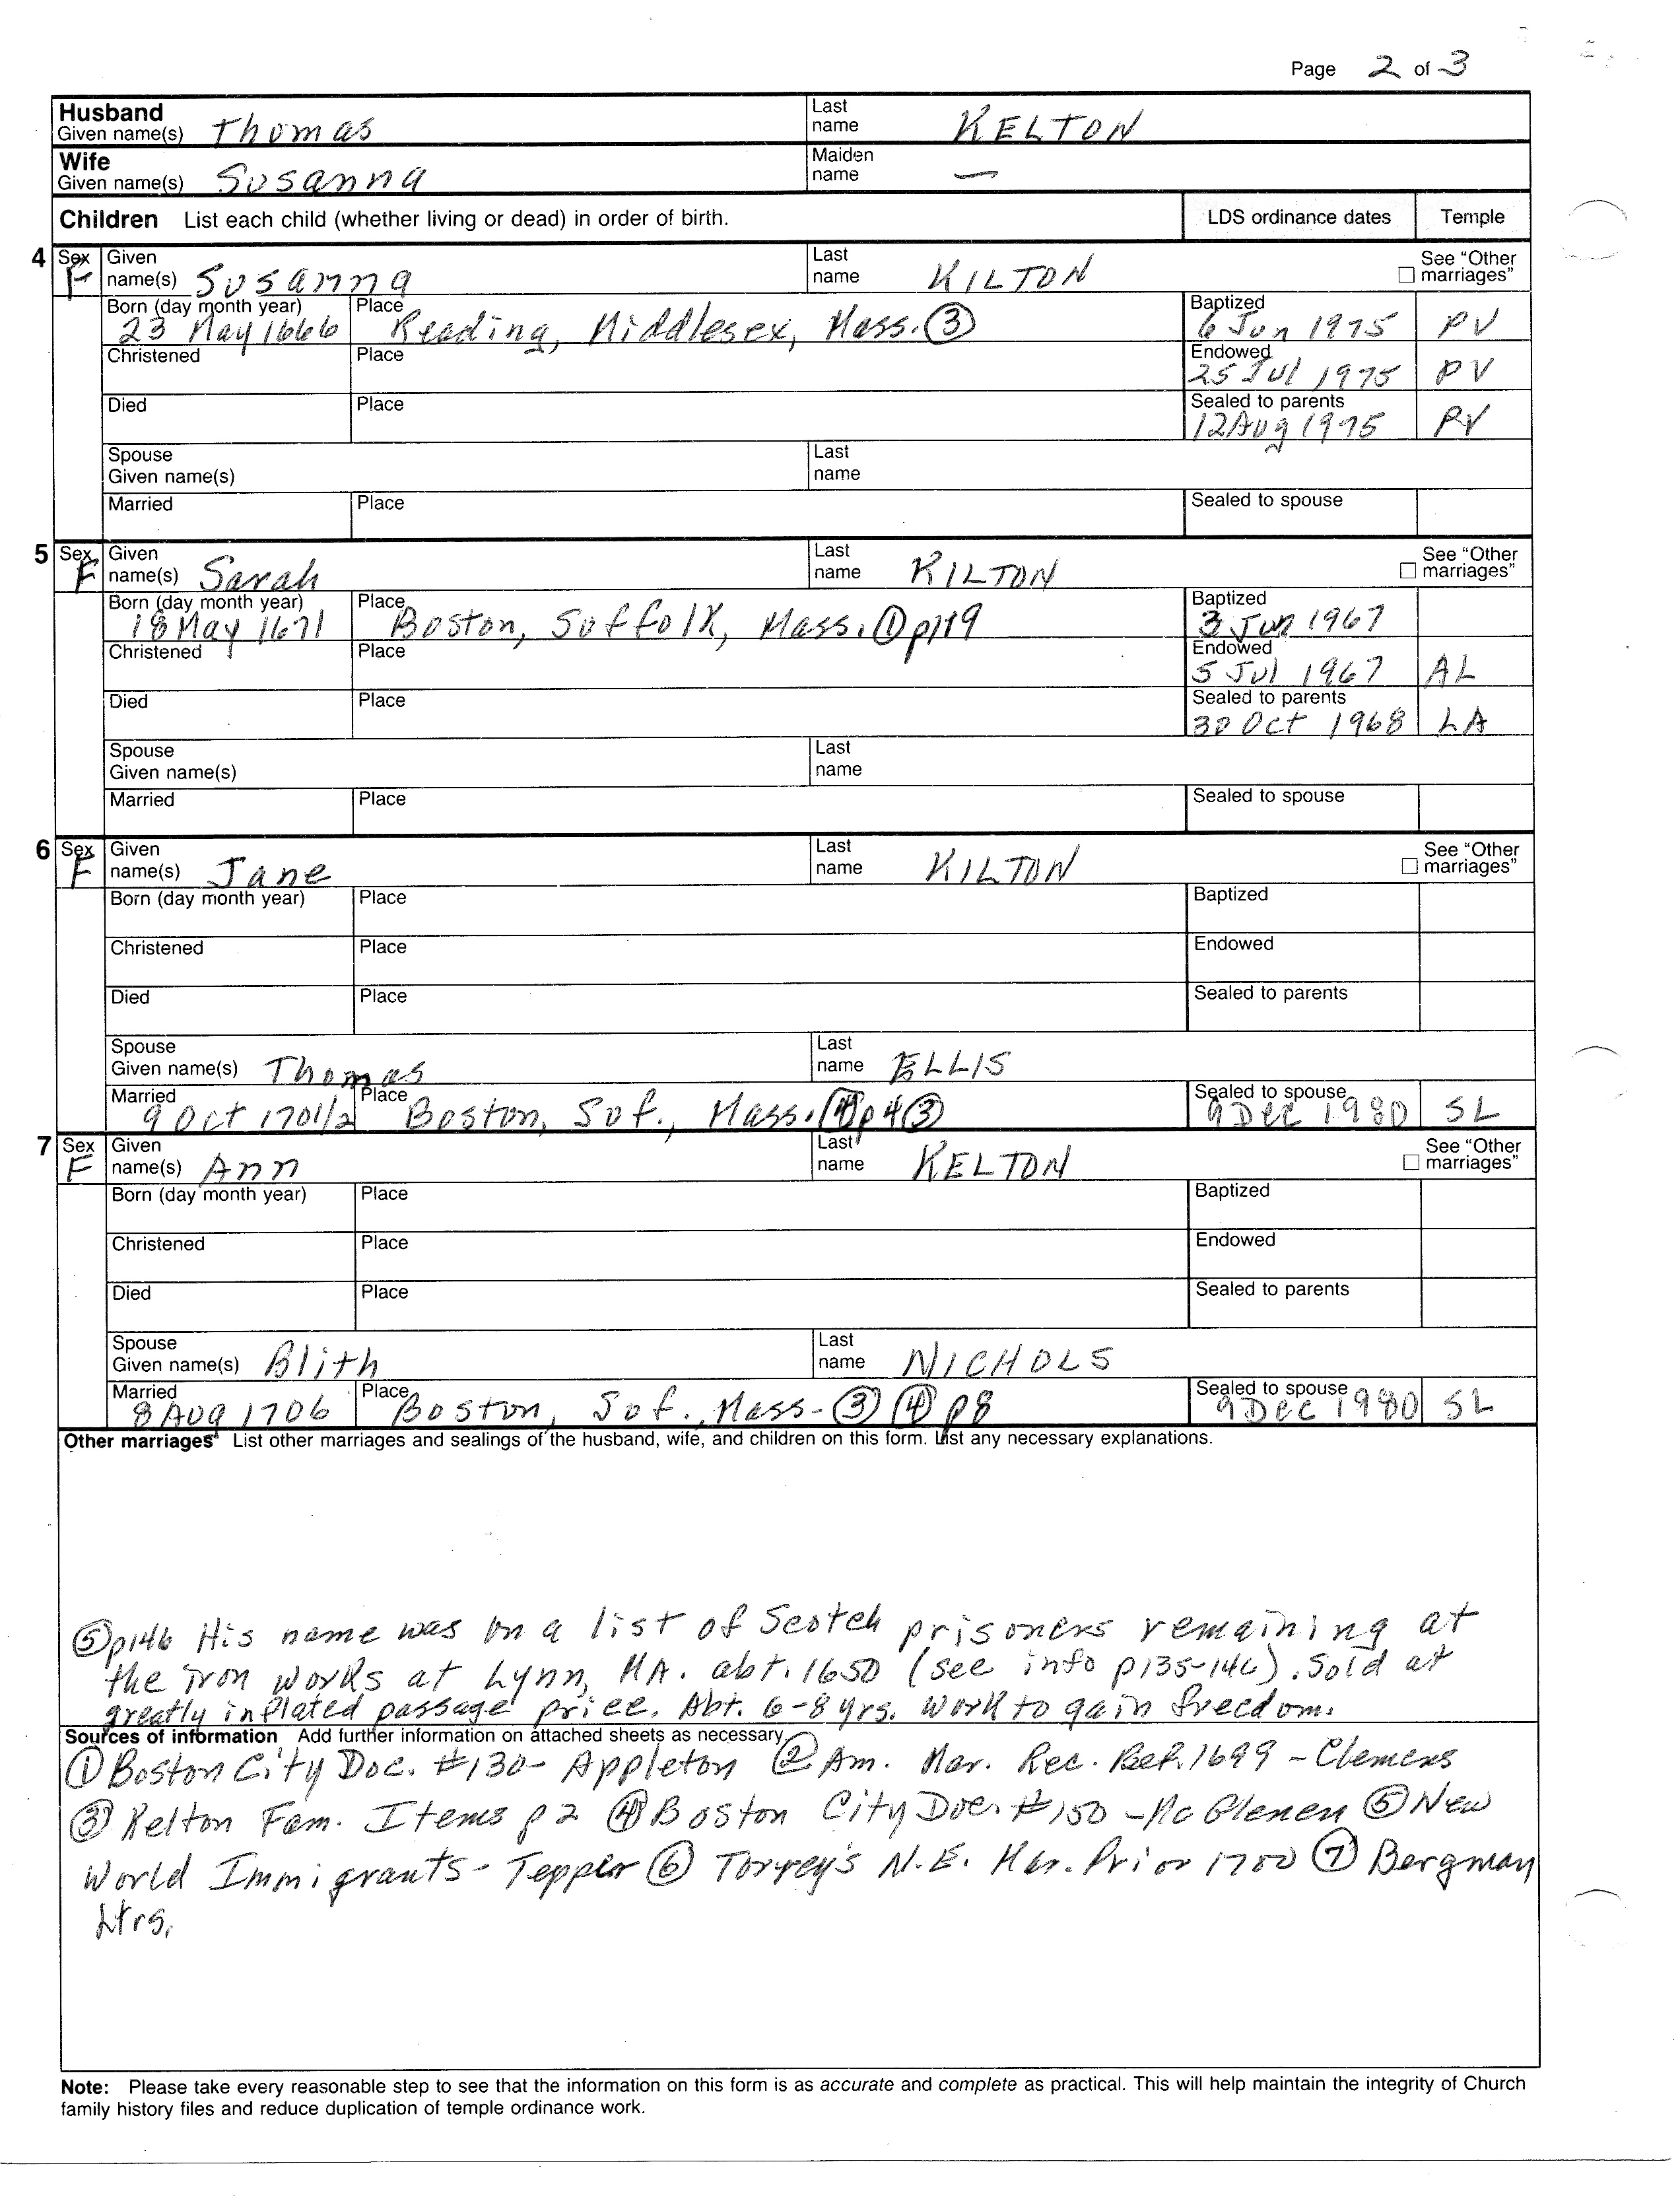 Page 2 of 3
Husband
Given name(s) Thomas Last name KELTON
Wife
Given name(s) Susanna Maiden name —
Children List each child (whether living or dead) in order of birth. LDS ordinance dates Temple
4 Sex F Given name(s) Susanna Last name KILTON See "Other marriages"
Born (day month year) 23 May 1666 Place Reading, Middlesex, Mass. ③ Baptized 6 Jun 1975 PV
Christened Place Endowed 25 Jul 1975 PV
Died Place Sealed to parents 12 Aug 1975 PV
Spouse Given name(s) Last name
Married Place Sealed to spouse
5 Sex F Given name(s) Sarah Last name KILTON See "Other marriages"
Born (day month year) 18 May 1671 Place Boston, Suffolk, Mass. ① p119 Baptized 3 Jun 1967
Christened Place Endowed 5 Jul 1967 AL
Died Place Sealed to parents 30 Oct 1968 LA
Spouse Given name(s) Last name
Married Place Sealed to spouse
6 Sex F Given name(s) Jane Last name KILTON See "Other marriages"
Born (day month year) Place Baptized
Christened Place Endowed
Died Place Sealed to parents
Spouse Given name(s) Thomas Last name ELLIS
Married 9 Oct 1701/2 Place Boston, Suf., Mass. ④ p4 ③ Sealed to spouse 9 Dec 1980 SL
7 Sex F Given name(s) Ann Last name KELTON See "Other marriages"
Born (day month year) Place Baptized
Christened Place Endowed
Died Place Sealed to parents
Spouse Given name(s) Blith Last name NICHOLS
Married 8 Aug 1706 Place Boston, Suf., Mass- ③ ④ p8 Sealed to spouse 9 Dec 1980 SL
Other marriages List other marriages and sealings of the husband, wife, and children on this form. List any necessary explanations.
⑤ p146 His name was on a list of Scotch prisoners remaining at
the iron works at Lynn, MA. abt. 1650 (see info p135-146). Sold at
greatly inflated passage price. Abt. 6-8 yrs. work to gain freedom.
Sources of information Add further information on attached sheets as necessary.
① Boston City Doc. #130- Appleton ② Am. Mar. Rec. Bef. 1699 - Clemens
③ Kelton Fam. Items p 2 ④ Boston City Doc. #150 - McGlenen ⑤ New
World Immigrants- Tepper ⑥ Torrey's N.E. Mar. Prior 1700 ⑦ Bergman
Ltrs.
Note: Please take every reasonable step to see that the information on this form is as accurate and complete as practical. This will help maintain the integrity of Church
family history files and reduce duplication of temple ordinance work.